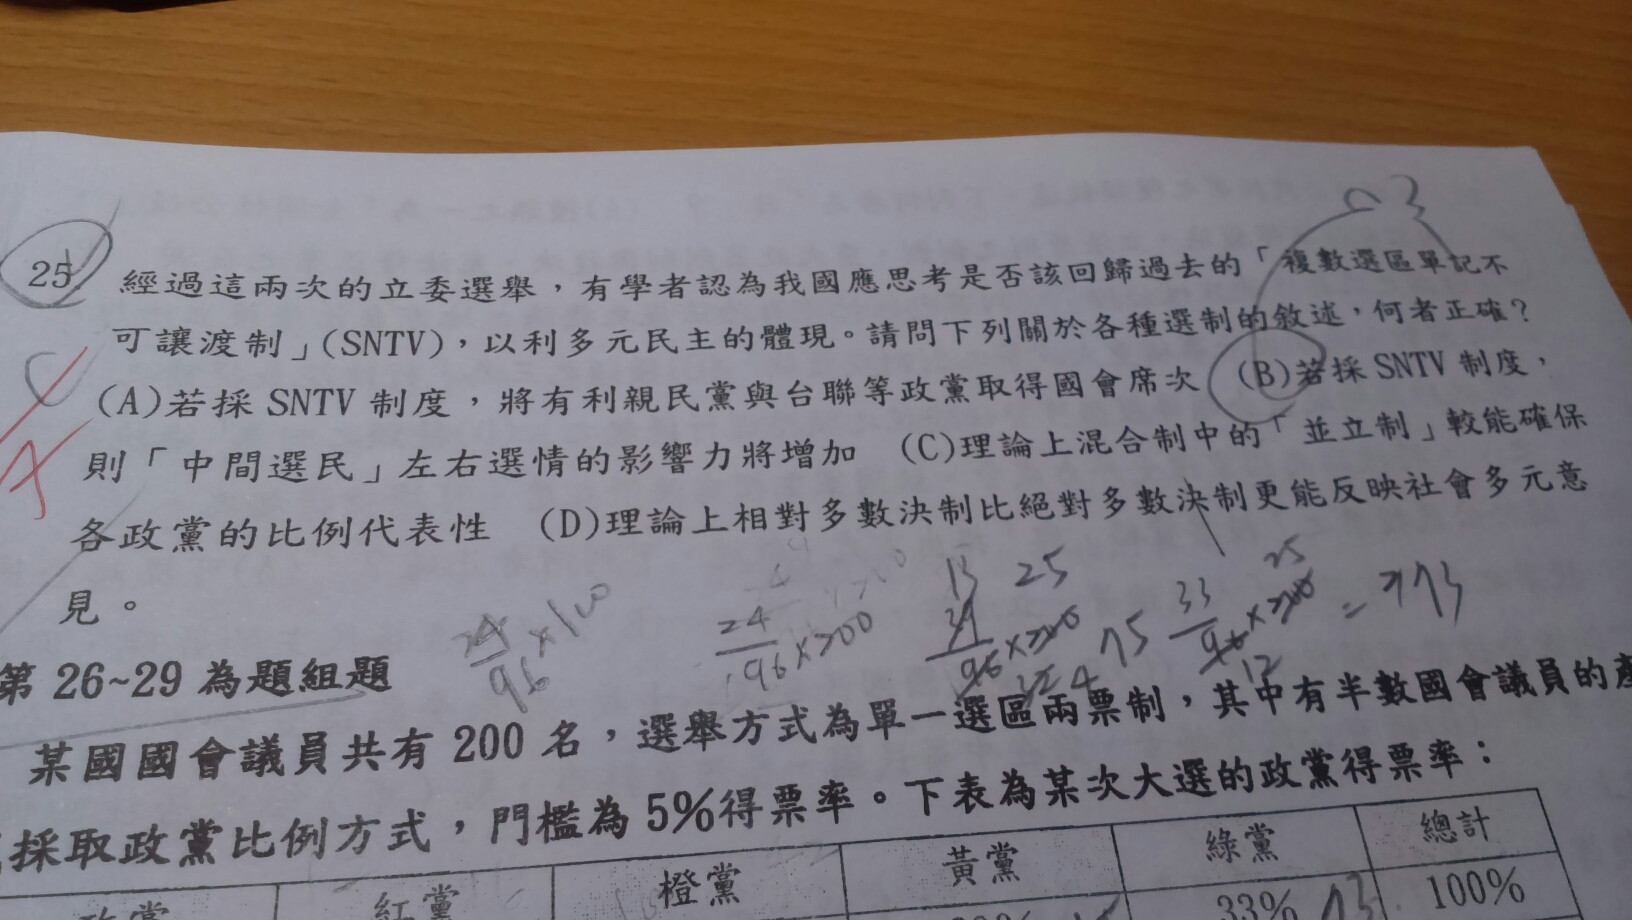 25.
經過這兩次的立委選舉，有學者認為我國應思考是否該回歸過去的「複數選區單記不
可讓渡制」(SNTV)，以利多元民主的體現。請問下列關於各種選制的敘述，何者正確？
(A)若採 SNTV 制度，將有利親民黨與台聯等政黨取得國會席次 (B)若採 SNTV 制度，
則「中間選民」左右選情的影響力將增加 (C)理論上混合制中的「並立制」較能確保
各政黨的比例代表性 (D)理論上相對多數決制比絕對多數決制更能反映社會多元意
見。
24/96×100
24/96×200
25
75
33
25
12
第 26~29 為題組題
某國國會議員共有 200 名，選舉方式為單一選區兩票制，其中有半數國會議員的產
採取政黨比例方式，門檻為 5%得票率。下表為某次大選的政黨得票率：
政黨 紅黨 橙黨 黃黨 綠黨 總計
33% 100%